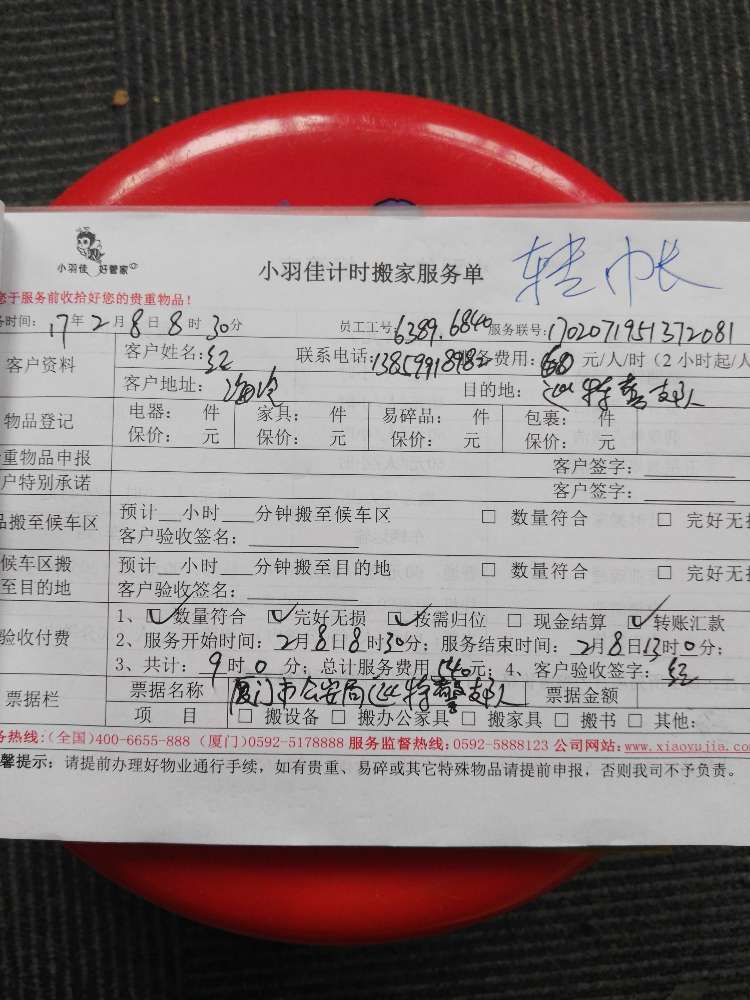 小羽佳 好管家
小羽佳计时搬家服务单
转帐
您于服务前收拾好您的贵重物品!
务时间: 17年2月8日8时30分 员工工号: 6389.6840 服务联号: 1702071951372081
客户资料
客户姓名: 联系电话: 服务费用: 元/人/时(2小时起/人
客户地址: 目的地: 特警支队
物品登记
电器: 件 家具: 件 易碎品: 件 包裹: 件
保价: 元 保价: 元 保价: 元 保价: 元
重物品申报 客户签字:
户特别承诺 客户签字:
品搬至候车区
预计__小时__分钟搬至候车区 □ 数量符合 □ 完好无损
客户验收签名:
候车区搬至目的地
预计__小时__分钟搬至目的地 □ 数量符合 □ 完好无损
客户验收签名:
验收付费
1、☑数量符合 ☑完好无损 ☑按需归位 □ 现金结算 ☑转账汇款
2、服务开始时间: 2月8日8时30分; 服务结束时间: 2月8日13时0分;
3、共计: 9时0分; 总计服务费用 元; 4、客户验收签字:
票据栏
票据名称 厦门市公安局 特警支队 票据金额
项 目 □ 搬设备 □ 搬办公家具 □ 搬家具 □ 搬书 □ 其他:
务热线:(全国)400-6655-888 (厦门)0592-5178888 服务监督热线:0592-5888123 公司网站:www.xiaoyujia.com
馨提示: 请提前办理好物业通行手续,如有贵重、易碎或其它特殊物品请提前申报,否则我司不予负责。